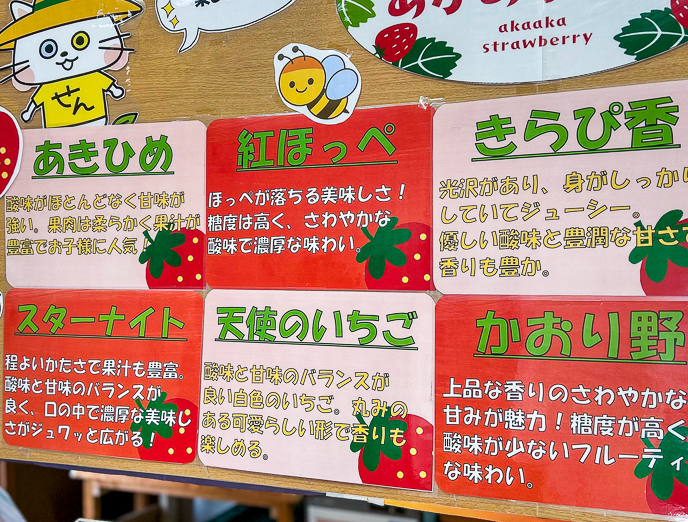 akaaka
strawberry
せん
あきひめ
酸味がほとんどなく甘味が
強い。果肉は柔らかく果汁が
豊富でお子様に人気！
紅ほっぺ
ほっぺが落ちる美味しさ！
糖度は高く、さわやかな
酸味で濃厚な味わい。
きらぴ香
光沢があり、身がしっかり
していてジューシー。
優しい酸味と豊潤な甘さで
香りも豊か。
スターナイト
程よいかたさで果汁も豊富。
酸味と甘味のバランスが
良く、口の中で濃厚な美味し
さがジュワッと広がる！
天使のいちご
酸味と甘味のバランスが
良い白色のいちご。丸みの
ある可愛らしい形で香りも
楽しめる。
かおり野
上品な香りのさわやかな
甘みが魅力！糖度が高く
酸味が少ないフルーティ
な味わい。